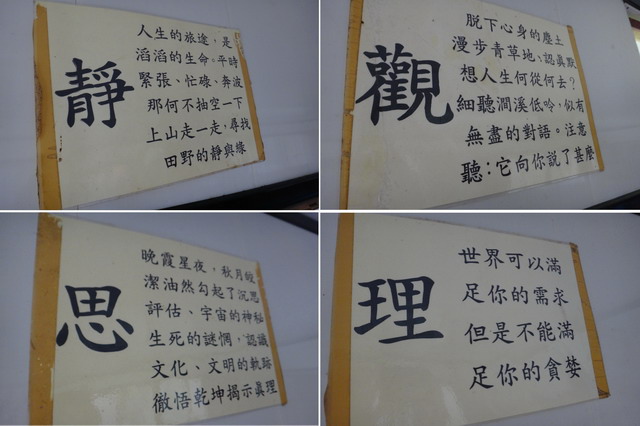 靜
人生的旅途，是
滔滔的生命、平時
緊張、忙碌、奔波
那何不抽空一下
上山走一走，尋找
田野的靜與緣
觀
脫下心身的塵土
漫步青草地、認真默
想人生何從何去？
細聽澗溪低吟，似有
無盡的對語。注意
聽：它向你說了甚麼
思
晚霞星夜，秋月皎
潔油然勾起了沉思
評估、宇宙的神秘
生死的謎惘，認識
文化、文明的軌跡
徹悟乾坤揭示真理
理
世界可以滿
足你的需求
但是不能滿
足你的貪婪